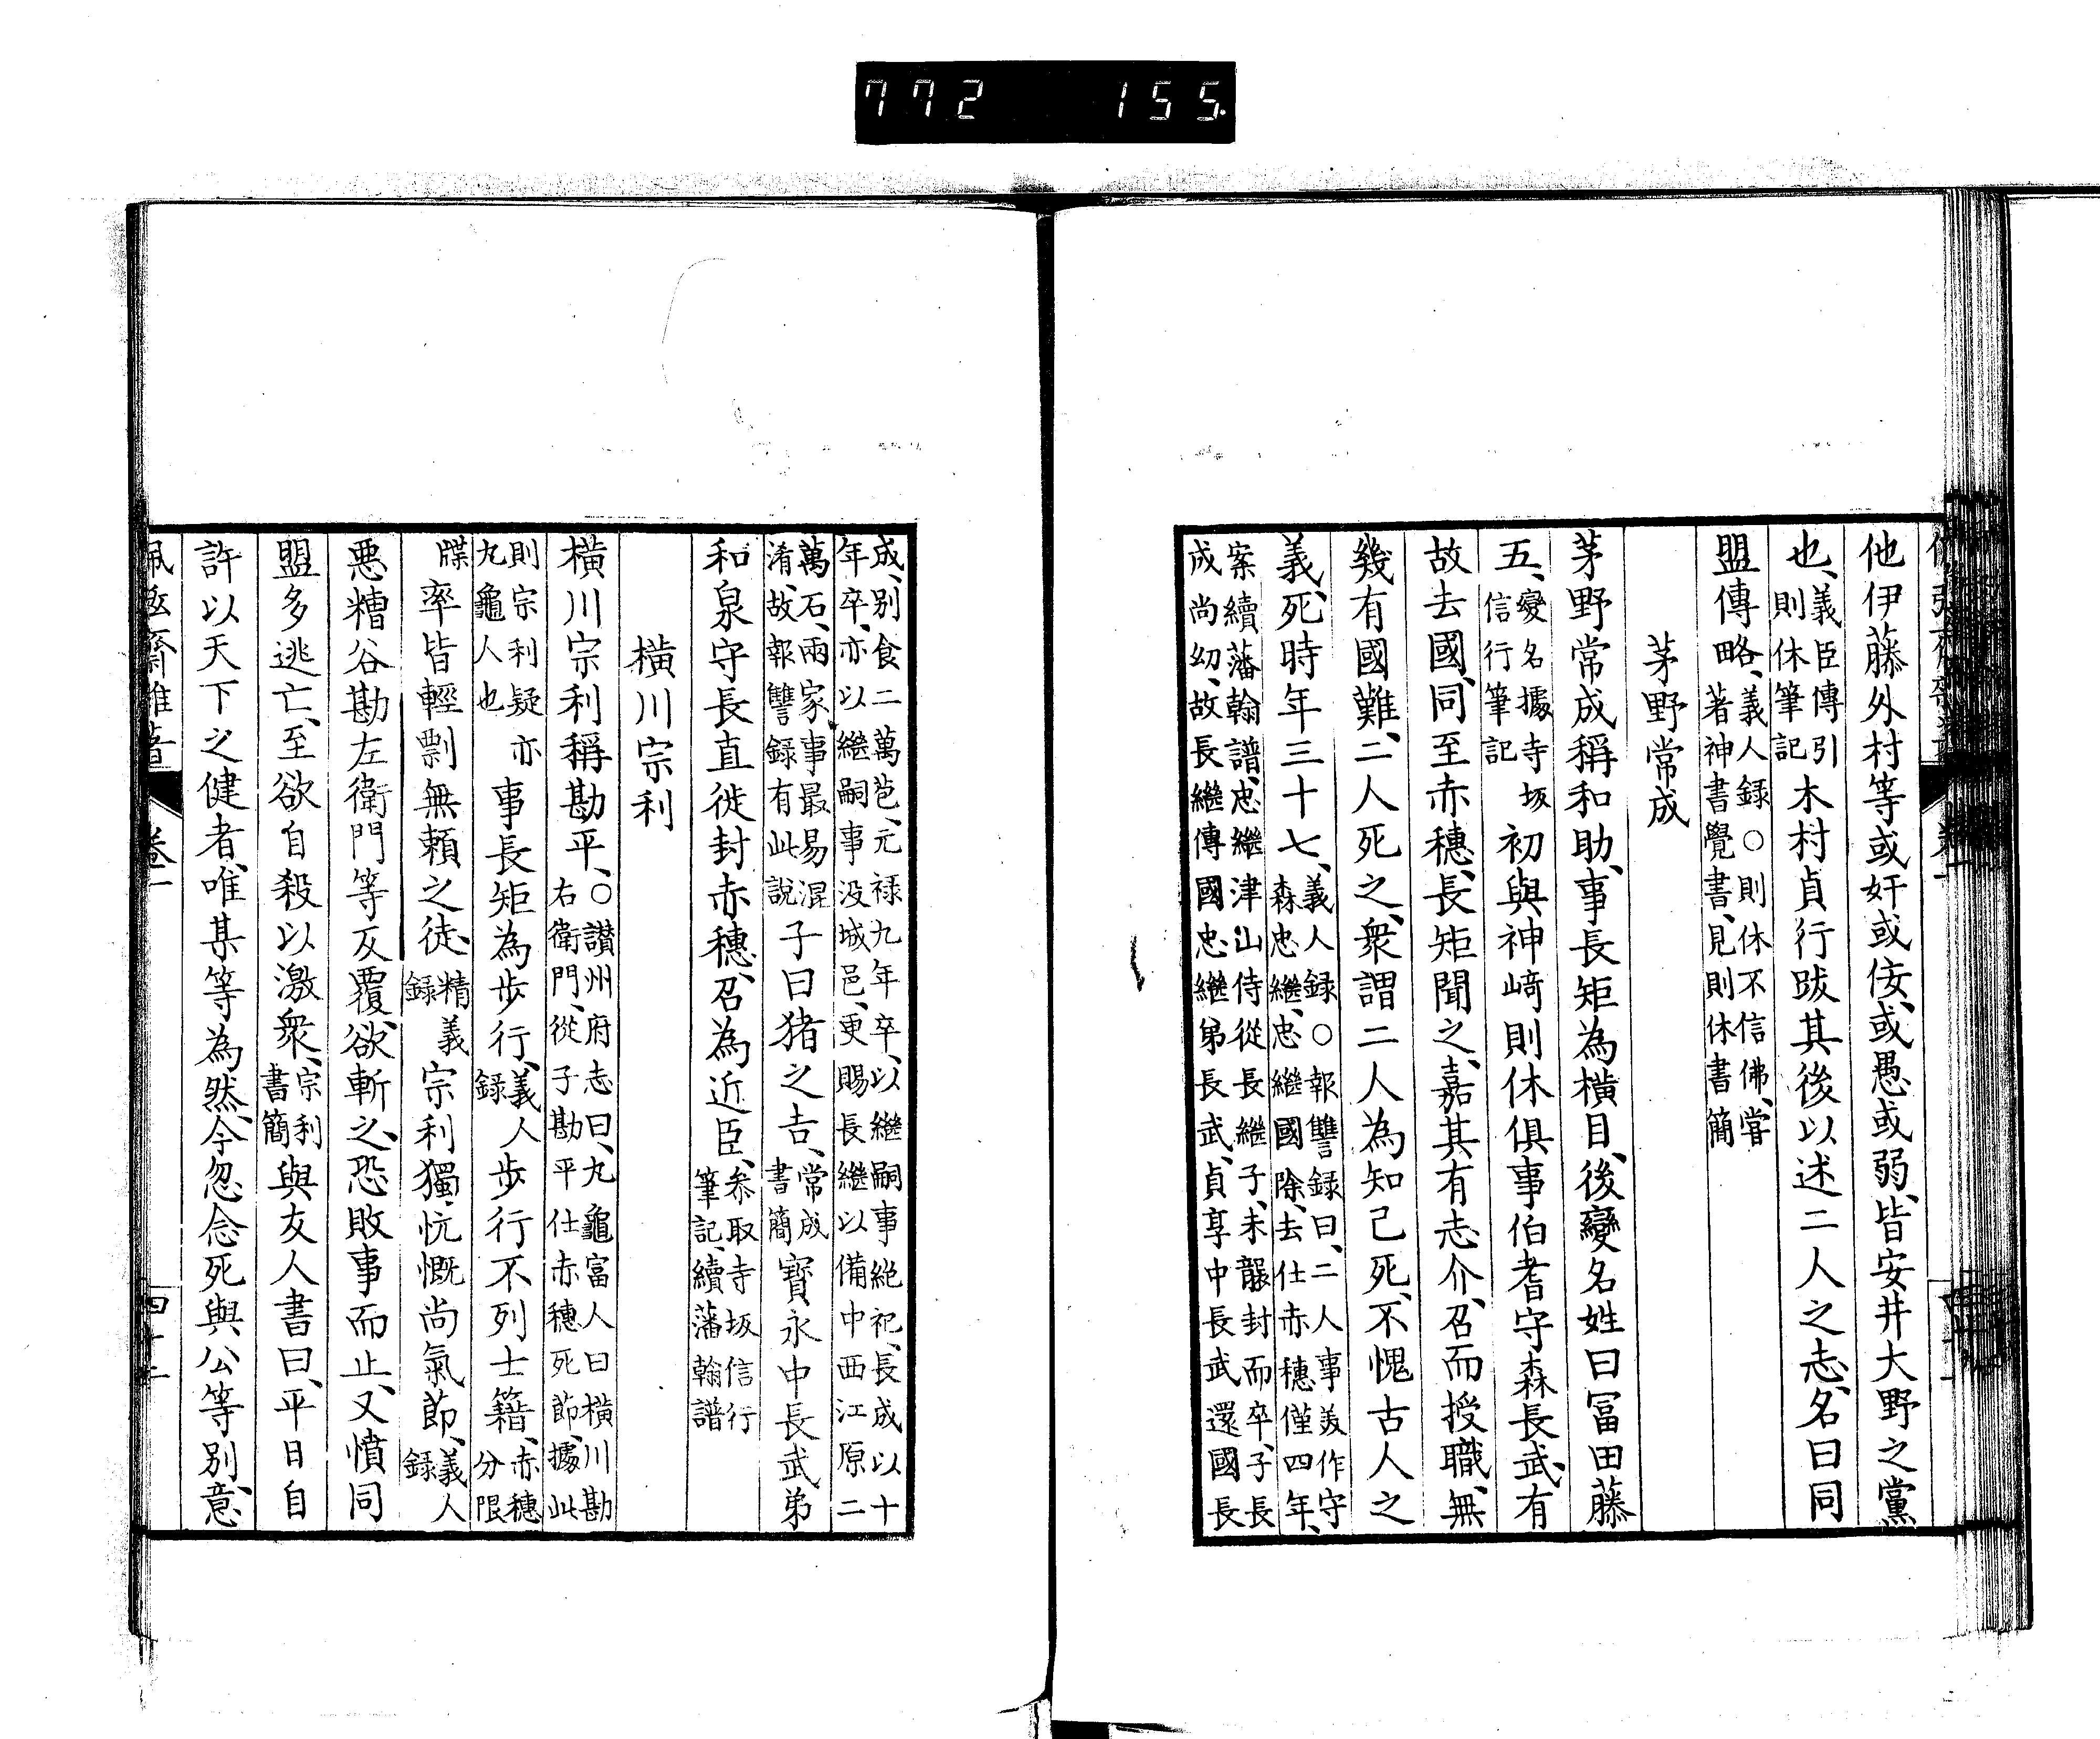 772 155
他伊藤外村等或奸或佞、或愚或弱、皆安井大野之黨
也、義臣傳引
則休筆記
木村貞行跋其後以述二人之志、名曰同
盟傳略、義人録○則休不信佛、嘗
著神書覺書、見則休書簡
茅野常成
茅野常成稱和助、事長矩為横目、後變名姓曰冨田藤
五、變名據寺坂
信行筆記
初與神﨑則休俱事伯耆守森長武、有
故去國、同至赤穗、長矩聞之、嘉其有志介、召而授職、無
幾有國難、二人死之、衆謂二人為知己死、不愧古人之
義、死時年三十七、義人録○報讐録曰、二人事美作守
森忠繼、忠繼國除、去仕赤穗僅四年、
案續藩翰譜、忠繼津山侍從長繼子、未襲封而卒、子長
成尚幼、故長繼傳國忠繼弟長武、貞享中長武還國長
成、別食二萬苞、元禄九年卒、以繼嗣事絶祀、長成以十
年卒、亦以繼嗣事没城邑、更賜長繼以備中西江原二
萬石、兩家事最易混
淆、故報讐録有此説
子曰猪之吉、常成
書簡
寶永中長武弟
和泉守長直徙封赤穗、召為近臣、参取寺坂信行
筆記、續藩翰譜
横川宗利
横川宗利稱勘平、○讃州府志曰、丸龜富人曰横川勘
右衛門、從子勘平仕赤穗死節、據此
則宗利疑亦
丸龜人也
事長矩為歩行、義人
録
歩行不列士籍、赤穗
分限
牒
率皆輕剽無頼之徒、精義
録
宗利獨忼慨尚氣節、義人
録
悪糟谷勘左衛門等反覆、欲斬之、恐敗事而止、又憤同
盟多逃亡、至欲自殺以激衆、宗利
書簡
與友人書曰、平日自
許以天下之健者、唯某等為然、今忽念死與公等別、意
佩弦齋雜著
卷一
四十二